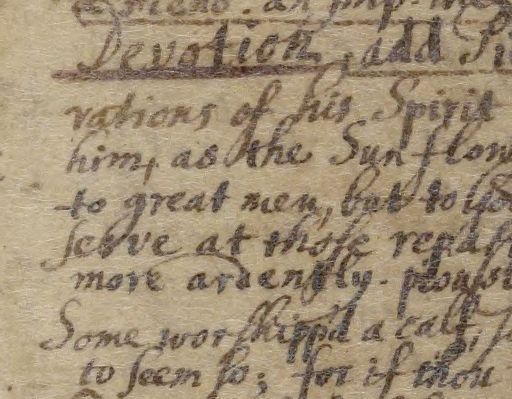 Devotion, add
rations of his Spirit
him, as the Sun flow
to great men, but to
serve at those repast
more ardently.
Some worshipp'd a calf,
to seem so; for if thou